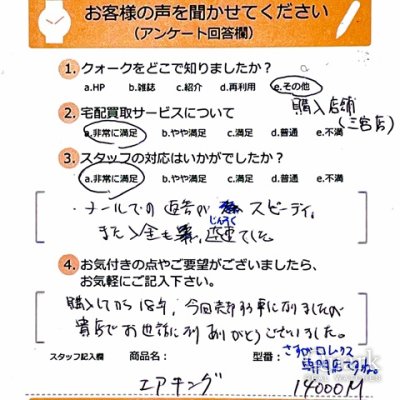 お客様の声を聞かせてください
(アンケート回答欄)
1. クォークをどこで知りましたか?
a.HP b.雑誌 c.紹介 d.再利用 e.その他
購入店舗
(三宮店)
2. 宅配買取サービスについて
a.非常に満足 b.やや満足 c.満足 d.普通 e.不満
3. スタッフの対応はいかがでしたか?
a.非常に満足 b.やや満足 c.満足 d.普通 e.不満
・メールでの返答が スピーディ。
じんそく
また入金も 迅速でした。
4. お気付きの点やご要望がございましたら、
お気軽にご記入下さい。
購入してから18年、今回売却する事になりましたが
貴店でお世話になり ありがとうございました。
さすがロレックス
専門店ですね。
スタッフ記入欄 商品名: 型番:
エアキング 14000M